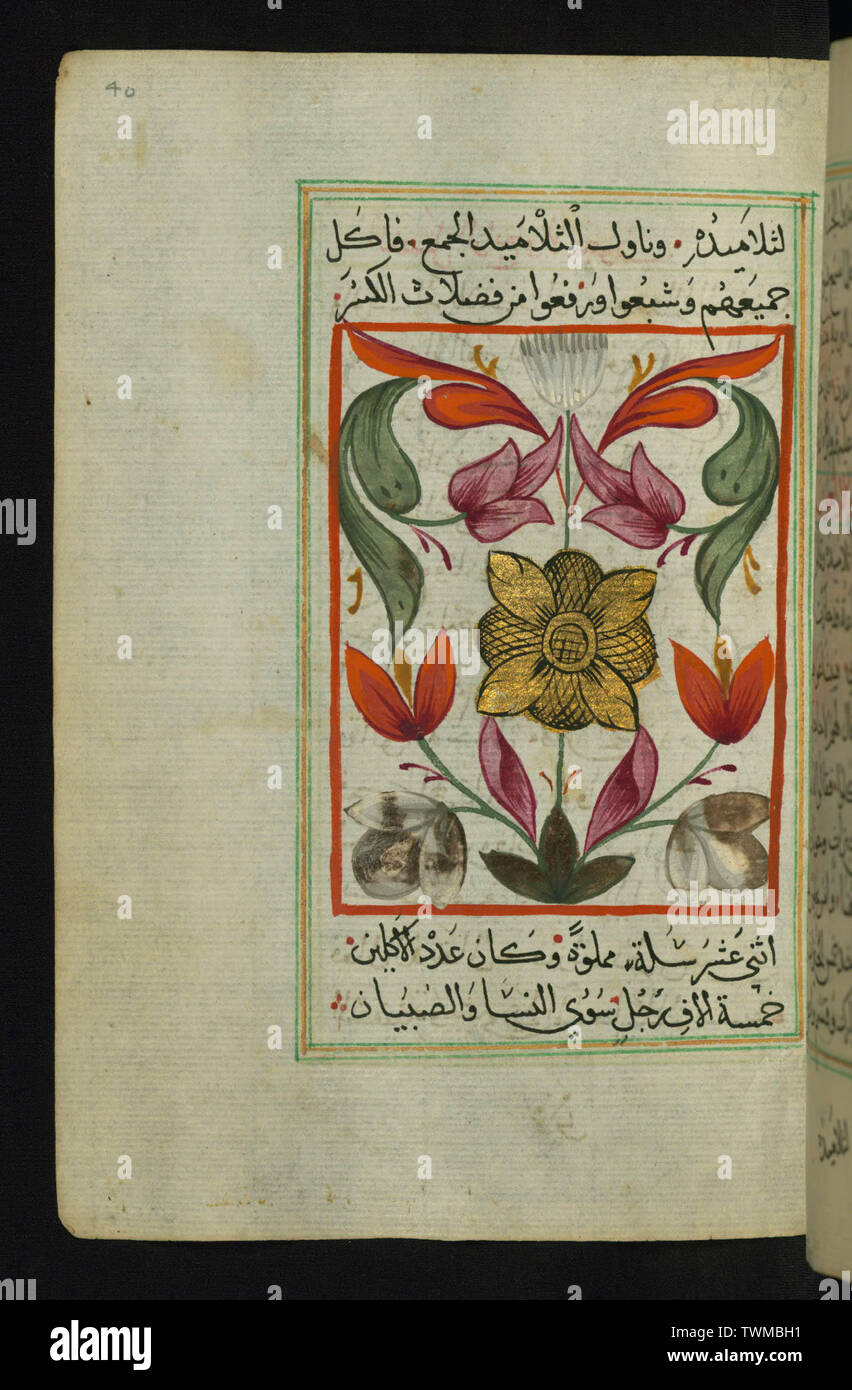 40
لتلاميذه • وناول التلاميد الجمع • فاكل
جميعهم وشبعوا ورفعوا من فضلات الكسر
اثنى عشر سلة مملوة وكان عدد الاكلين
خمسة الاف رجل سوى النسا والصبيان
alamy
Image ID: TWMBH1
www.alamy.com